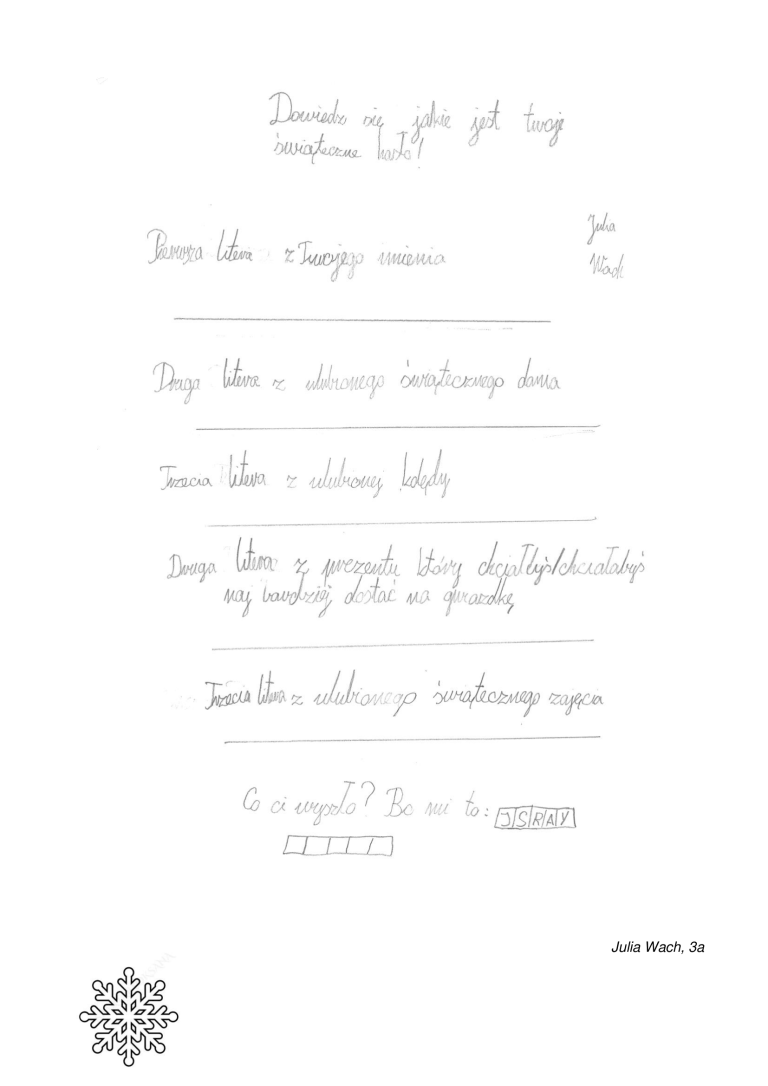 Dowiedz się jakie jest twoje
świąteczne hasło!
Julia
Wach
Pierwsza litera z Twojego imienia
Druga litera z ulubionego świątecznego dania
Trzecia litera z ulubionej kolędy
Druga litera z prezentu który chciałbyś/chciałabyś
naj bardziej dostać na gwiazdkę
Trzecia litera z ulubionego świątecznego zajęcia
Co ci wyszło? Bo mi to: JSRAY
Julia Wach, 3a